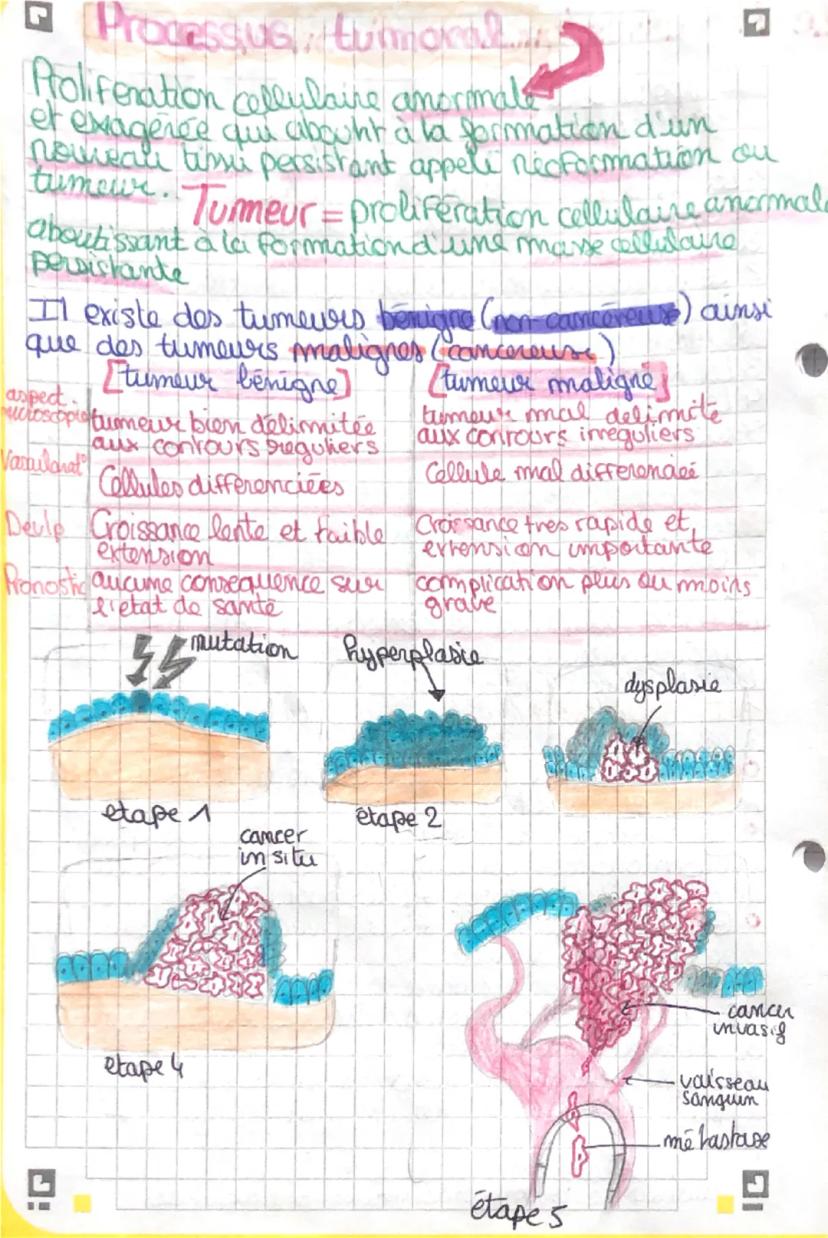 Processus tumoral
Proliferation cellulaire anormale
et exagérée qui aboutit à la formation d'un
nouveau tissu persistant appelé néoformation ou
tumeur. Tumeur = prolifération cellulaire anormale
aboutissant à la formation d'une masse cellulaire
persistante
Il existe des tumeurs bénigne (non-cancéreuse) ainsi
que des tumeurs malignes (cancereuse)
[tumeur bénigne] [tumeur maligne]
aspect
tumeur bien délimitée tumeur mal delimité
aux contours reguliers aux contours irreguliers
Cellules differenciées Cellule mal differenciée
Devlp Croissance lente et faible Croissance tres rapide et
extension extension importante
Pronostic aucume consequence sur complication plus ou moins
l'etat de santé grave
mutation hyperplasie dysplasie
etape 1 étape 2
cancer
in situ
cancer
invasif
etape 4
vaisseau
sanguin
métastase
étape 5